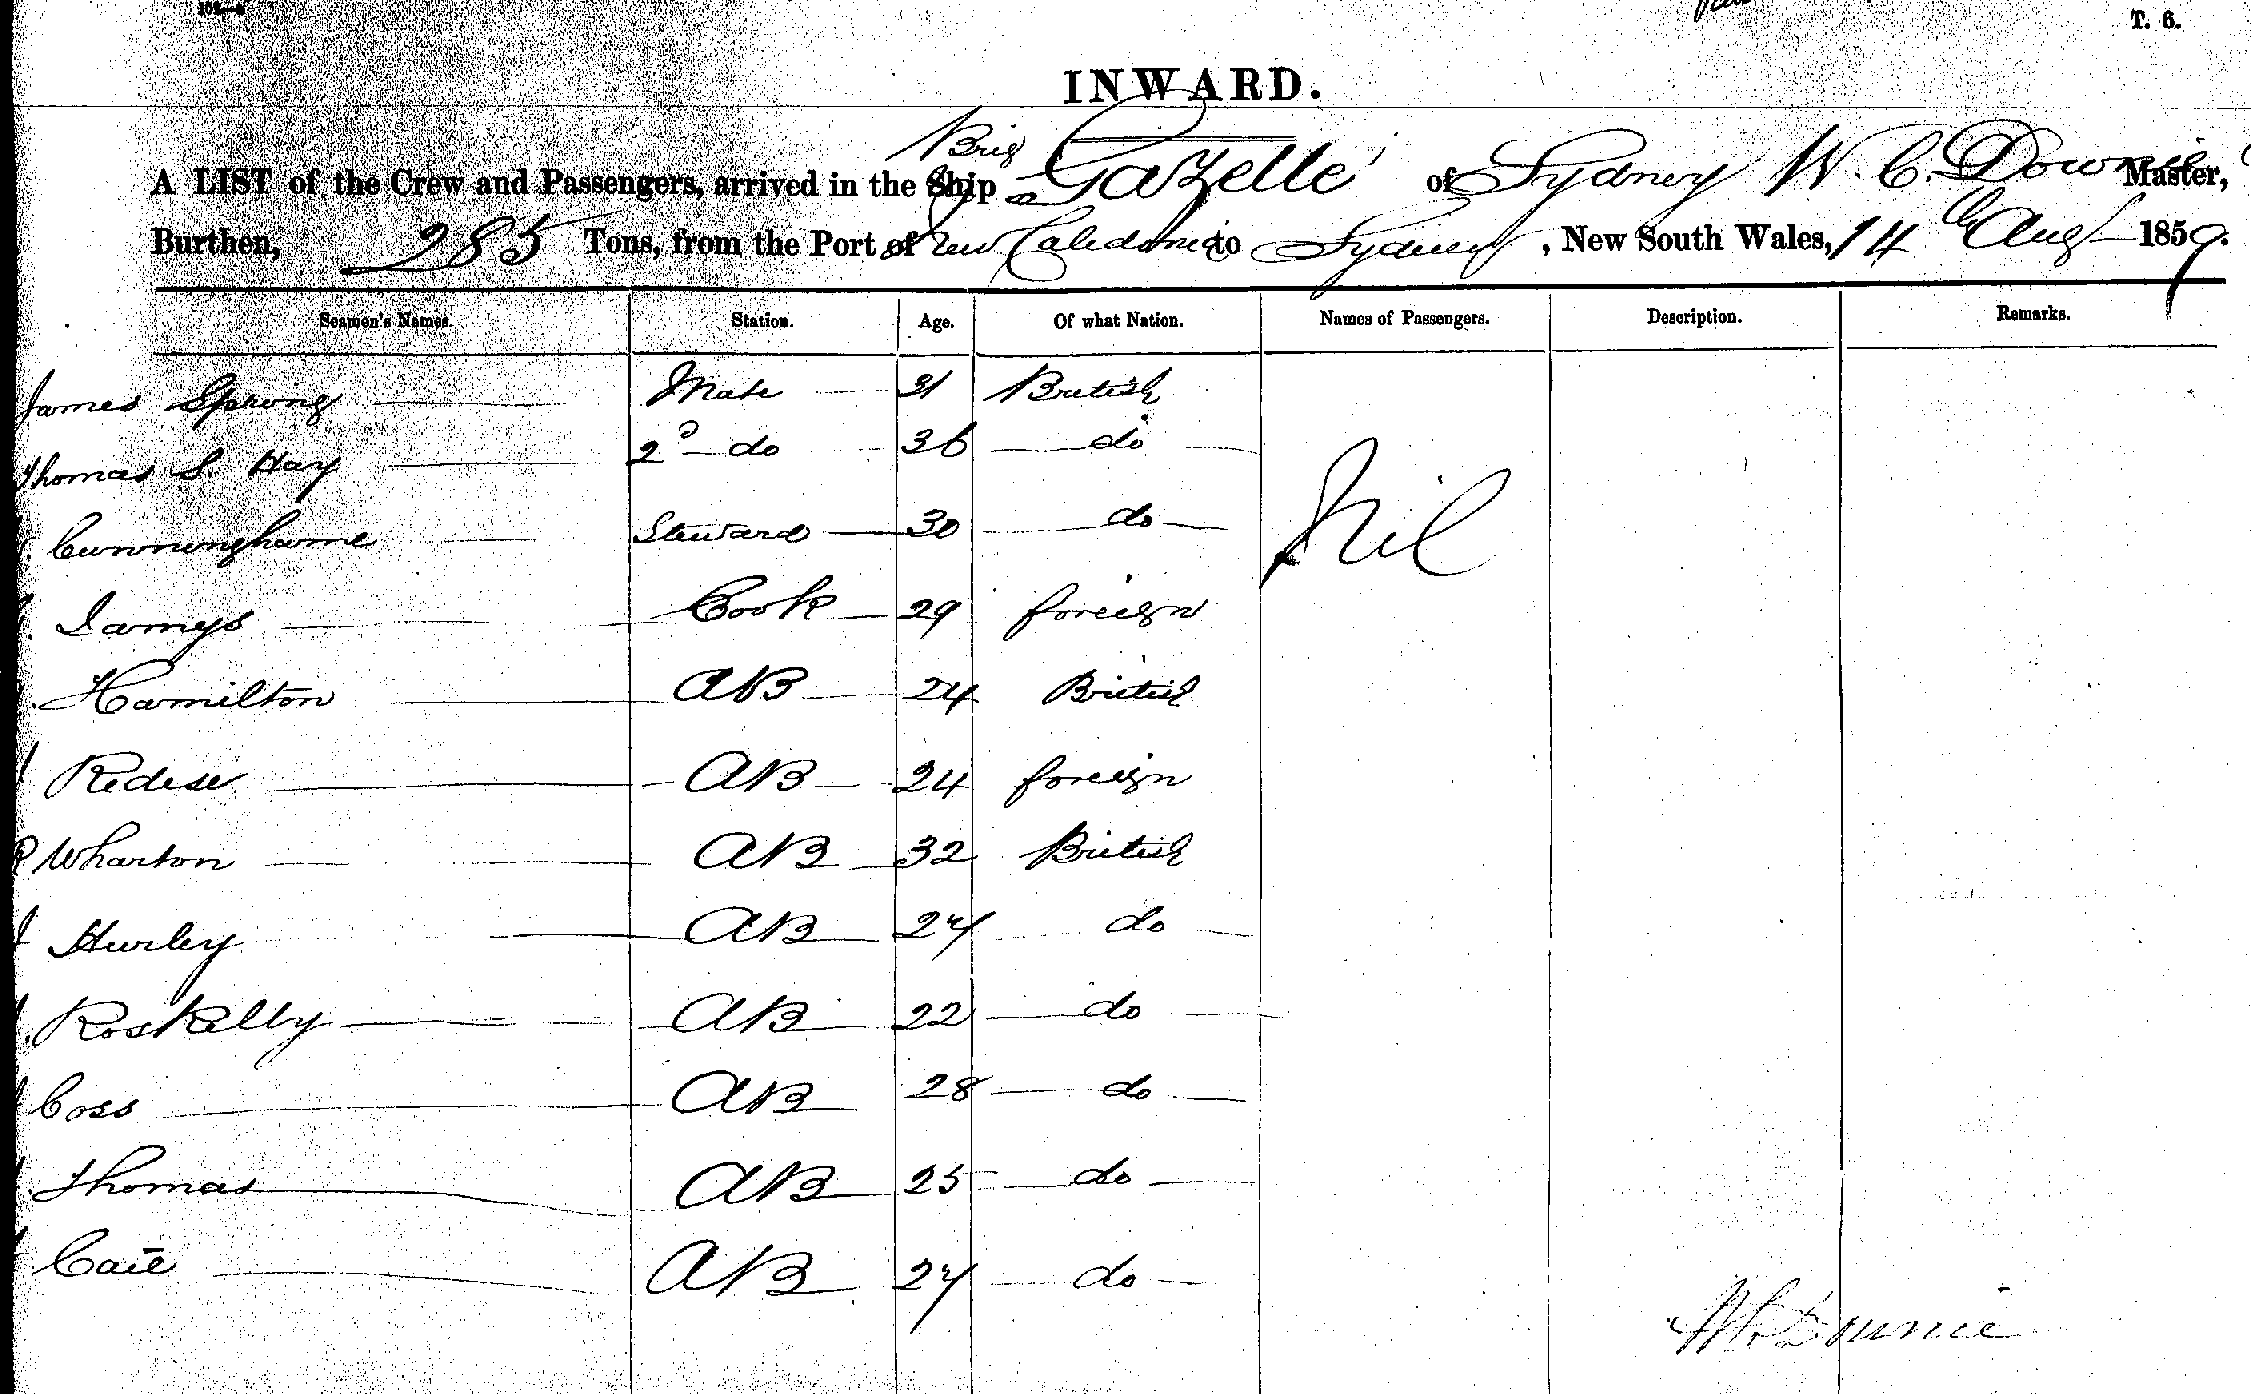 T. 6.
INWARD.
Brig
A LIST of the Crew and Passengers, arrived in the Ship Gazelle of Sydney W. C. Downie Master,
Burthen, 285 Tons, from the Port of New Caledonia to Sydney, New South Wales, 14 Augt 1859.
Seamen's Names. Station. Age. Of what Nation. Names of Passengers. Description. Remarks.
James Sprong Mate 31 British
Thomas S. Hay 2d do 36 do
Nil
Cunninghame Steward 30 do
Jamys Cook 29 foreign
Hamilton AB 24 British
Redese AB 24 foreign
P Wharton AB 32 British
Hurley AB 24 do
Roskelly AB 22 do
Coss AB 28 do
Thomas AB 25 do
AB 24 do
W. Downie